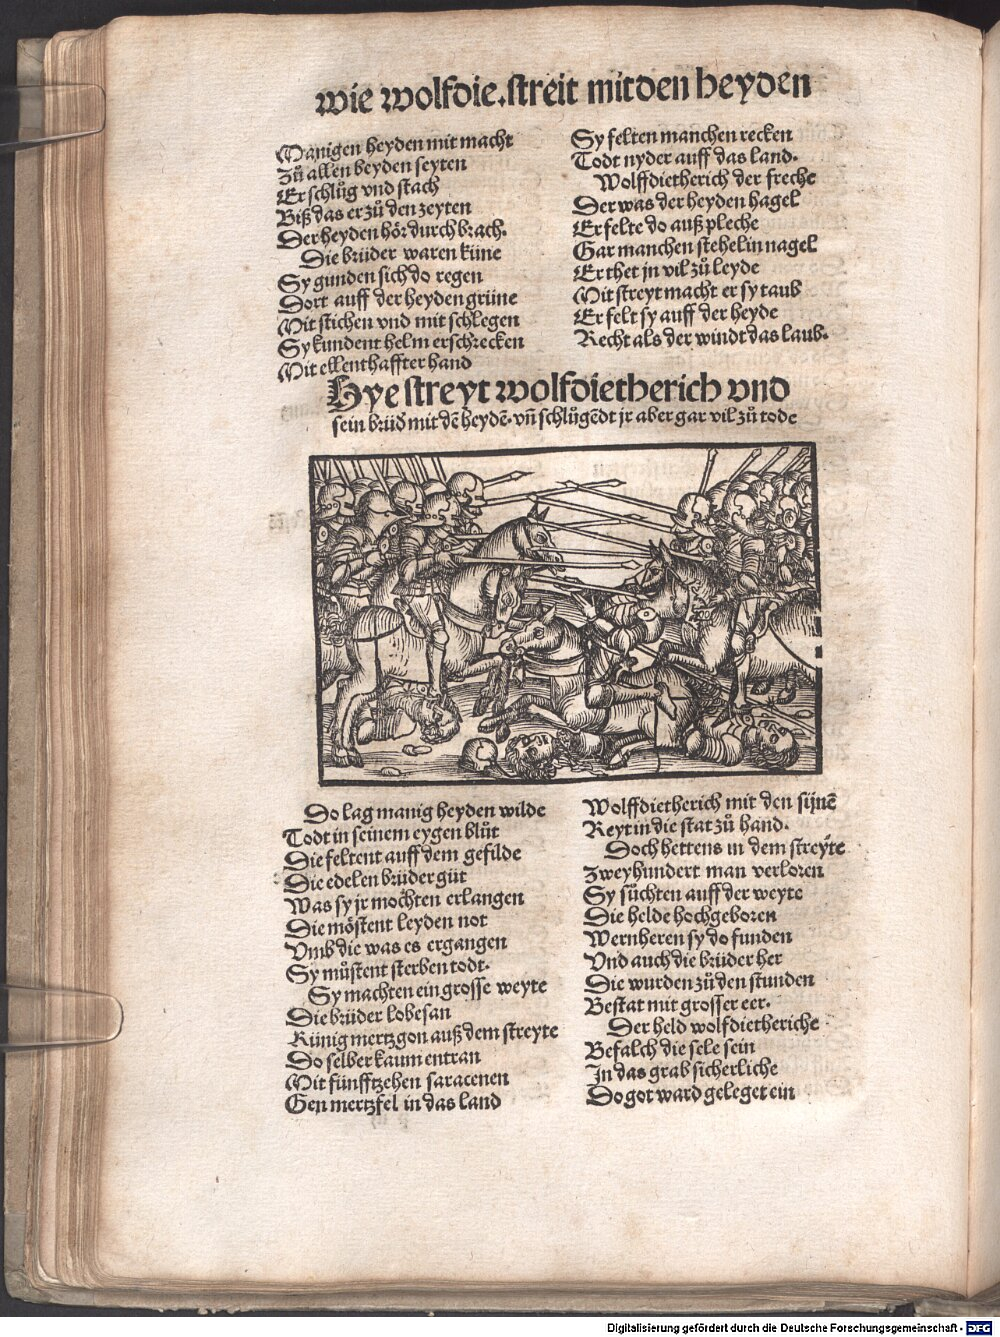 wie wolfdie. streit mit den heyden
Manigen heyden mit macht
Zů allen beyden seyten
Er schlůg vnd stach
Biß das er zů den zeyten
Der heyden hör durch brach.
Die brüder waren küne
Sy gunden sich do regen
Dort auff der heyden grüne
Mit stichen vnd mit schlegen
Sy kundent helm erschrecken
Mit ellenthaffter hand
Sy felten manchen recken
Todt nyder auff das land.
Wolffdietherich der freche
Der was der heyden hagel
Er felte do auß pleche
Gar manchen stehelin nagel
Er thet jn vil zů leyde
Mit streyt macht er sy taub
Er felt sy auff der heyde
Recht als der windt das laub.
Hye streyt wolfdietherich vnd
sein brüd mit dē heydē. vñ schlůgēdt jr aber gar vil zů tode
Do lag manig heyden wilde
Todt in seinem eygen blůt
Die feltent auff dem gefilde
Die edelen brüder gůt
Was sy jr mochten erlangen
Die můstent leyden not
Vmb die was es ergangen
Sy můstent sterben todt.
Sy machten ein grosse weyte
Die brüder lobesan
Künig mertzgon auß dem streyte
Do selber kaum entran
Mit fünfftzehen saracenen
Gen mertzfel in das land
Wolffdietherich mit den sijnē
Reyt in die stat zů hand.
Doch hettens in dem streyte
Zweyhundert man verloren
Sy sůchten auff der weyte
Die helde hochgeboren
Wernheren sy do funden
Vnd auch die brüder her
Die wurden zů den stunden
Bestat mit grosser eer.
Der held wolfdietheriche
Befalch die sele sein
In das grab sicherliche
Do got ward geleget ein
Digitalisierung gefördert durch die Deutsche Forschungsgemeinschaft - DFG